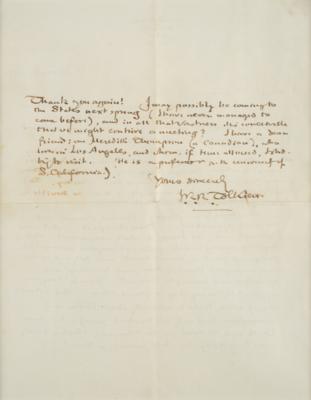 Thank you again! I may possibly be coming to
the States next spring (I have never managed to
come before), and in all that vastness is it conceivable
that we might contrive a meeting? I have a dear
friend, one Meredith Thompson (a Canadian), who
lives in Los Angeles, and whom, if time allowed, I should
try to visit. He is a professor in the university of
S. California).
Yours sincerely
J.R.R. Tolkien